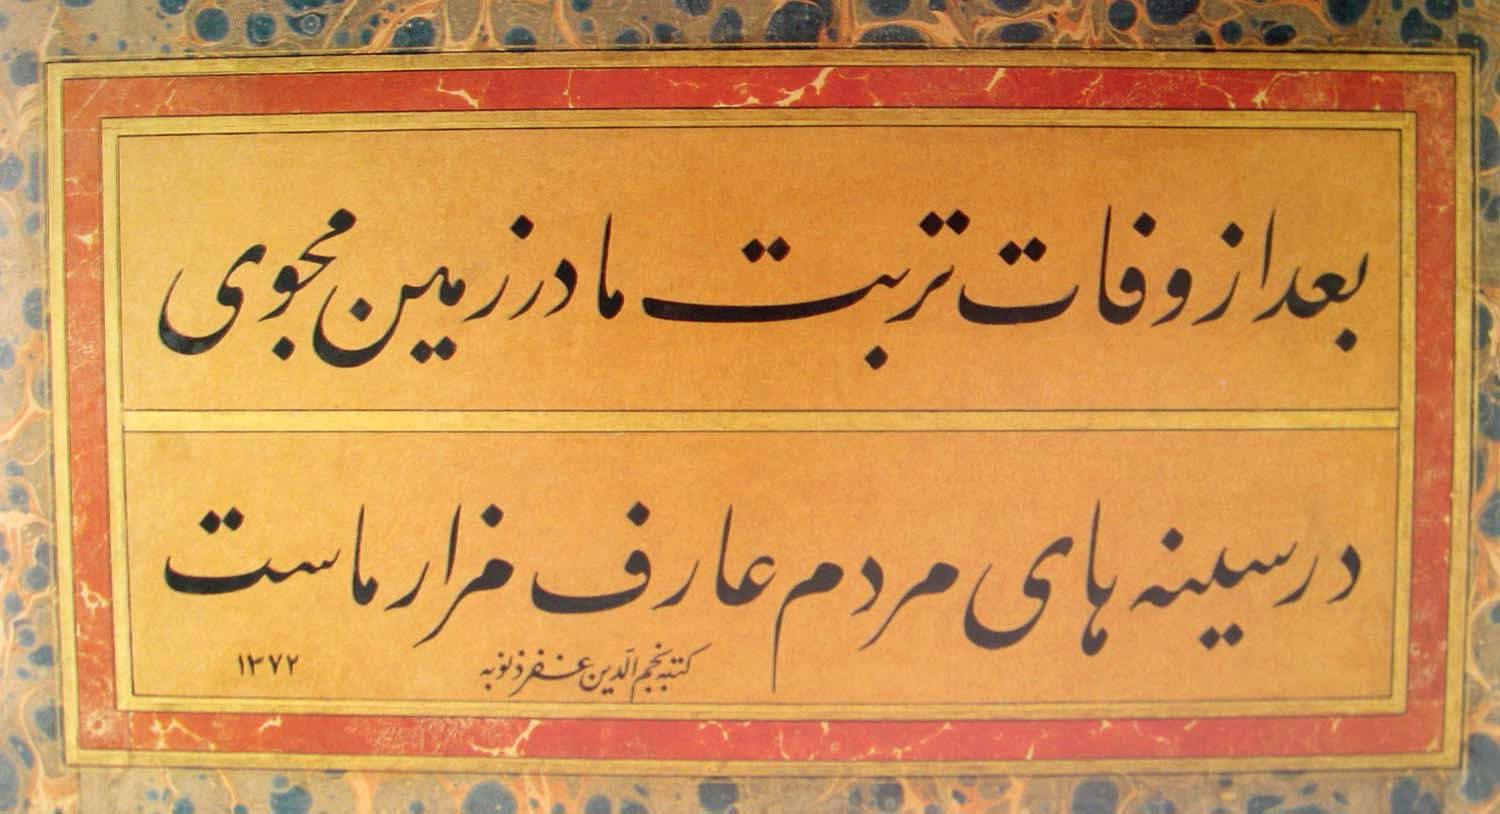 بعد از وفات تربت ما در زمین مجوی
در سینه های مردم عارف مزار ماست
کتبه نجم الدین غفر ذنوبه
۱۳۷۲